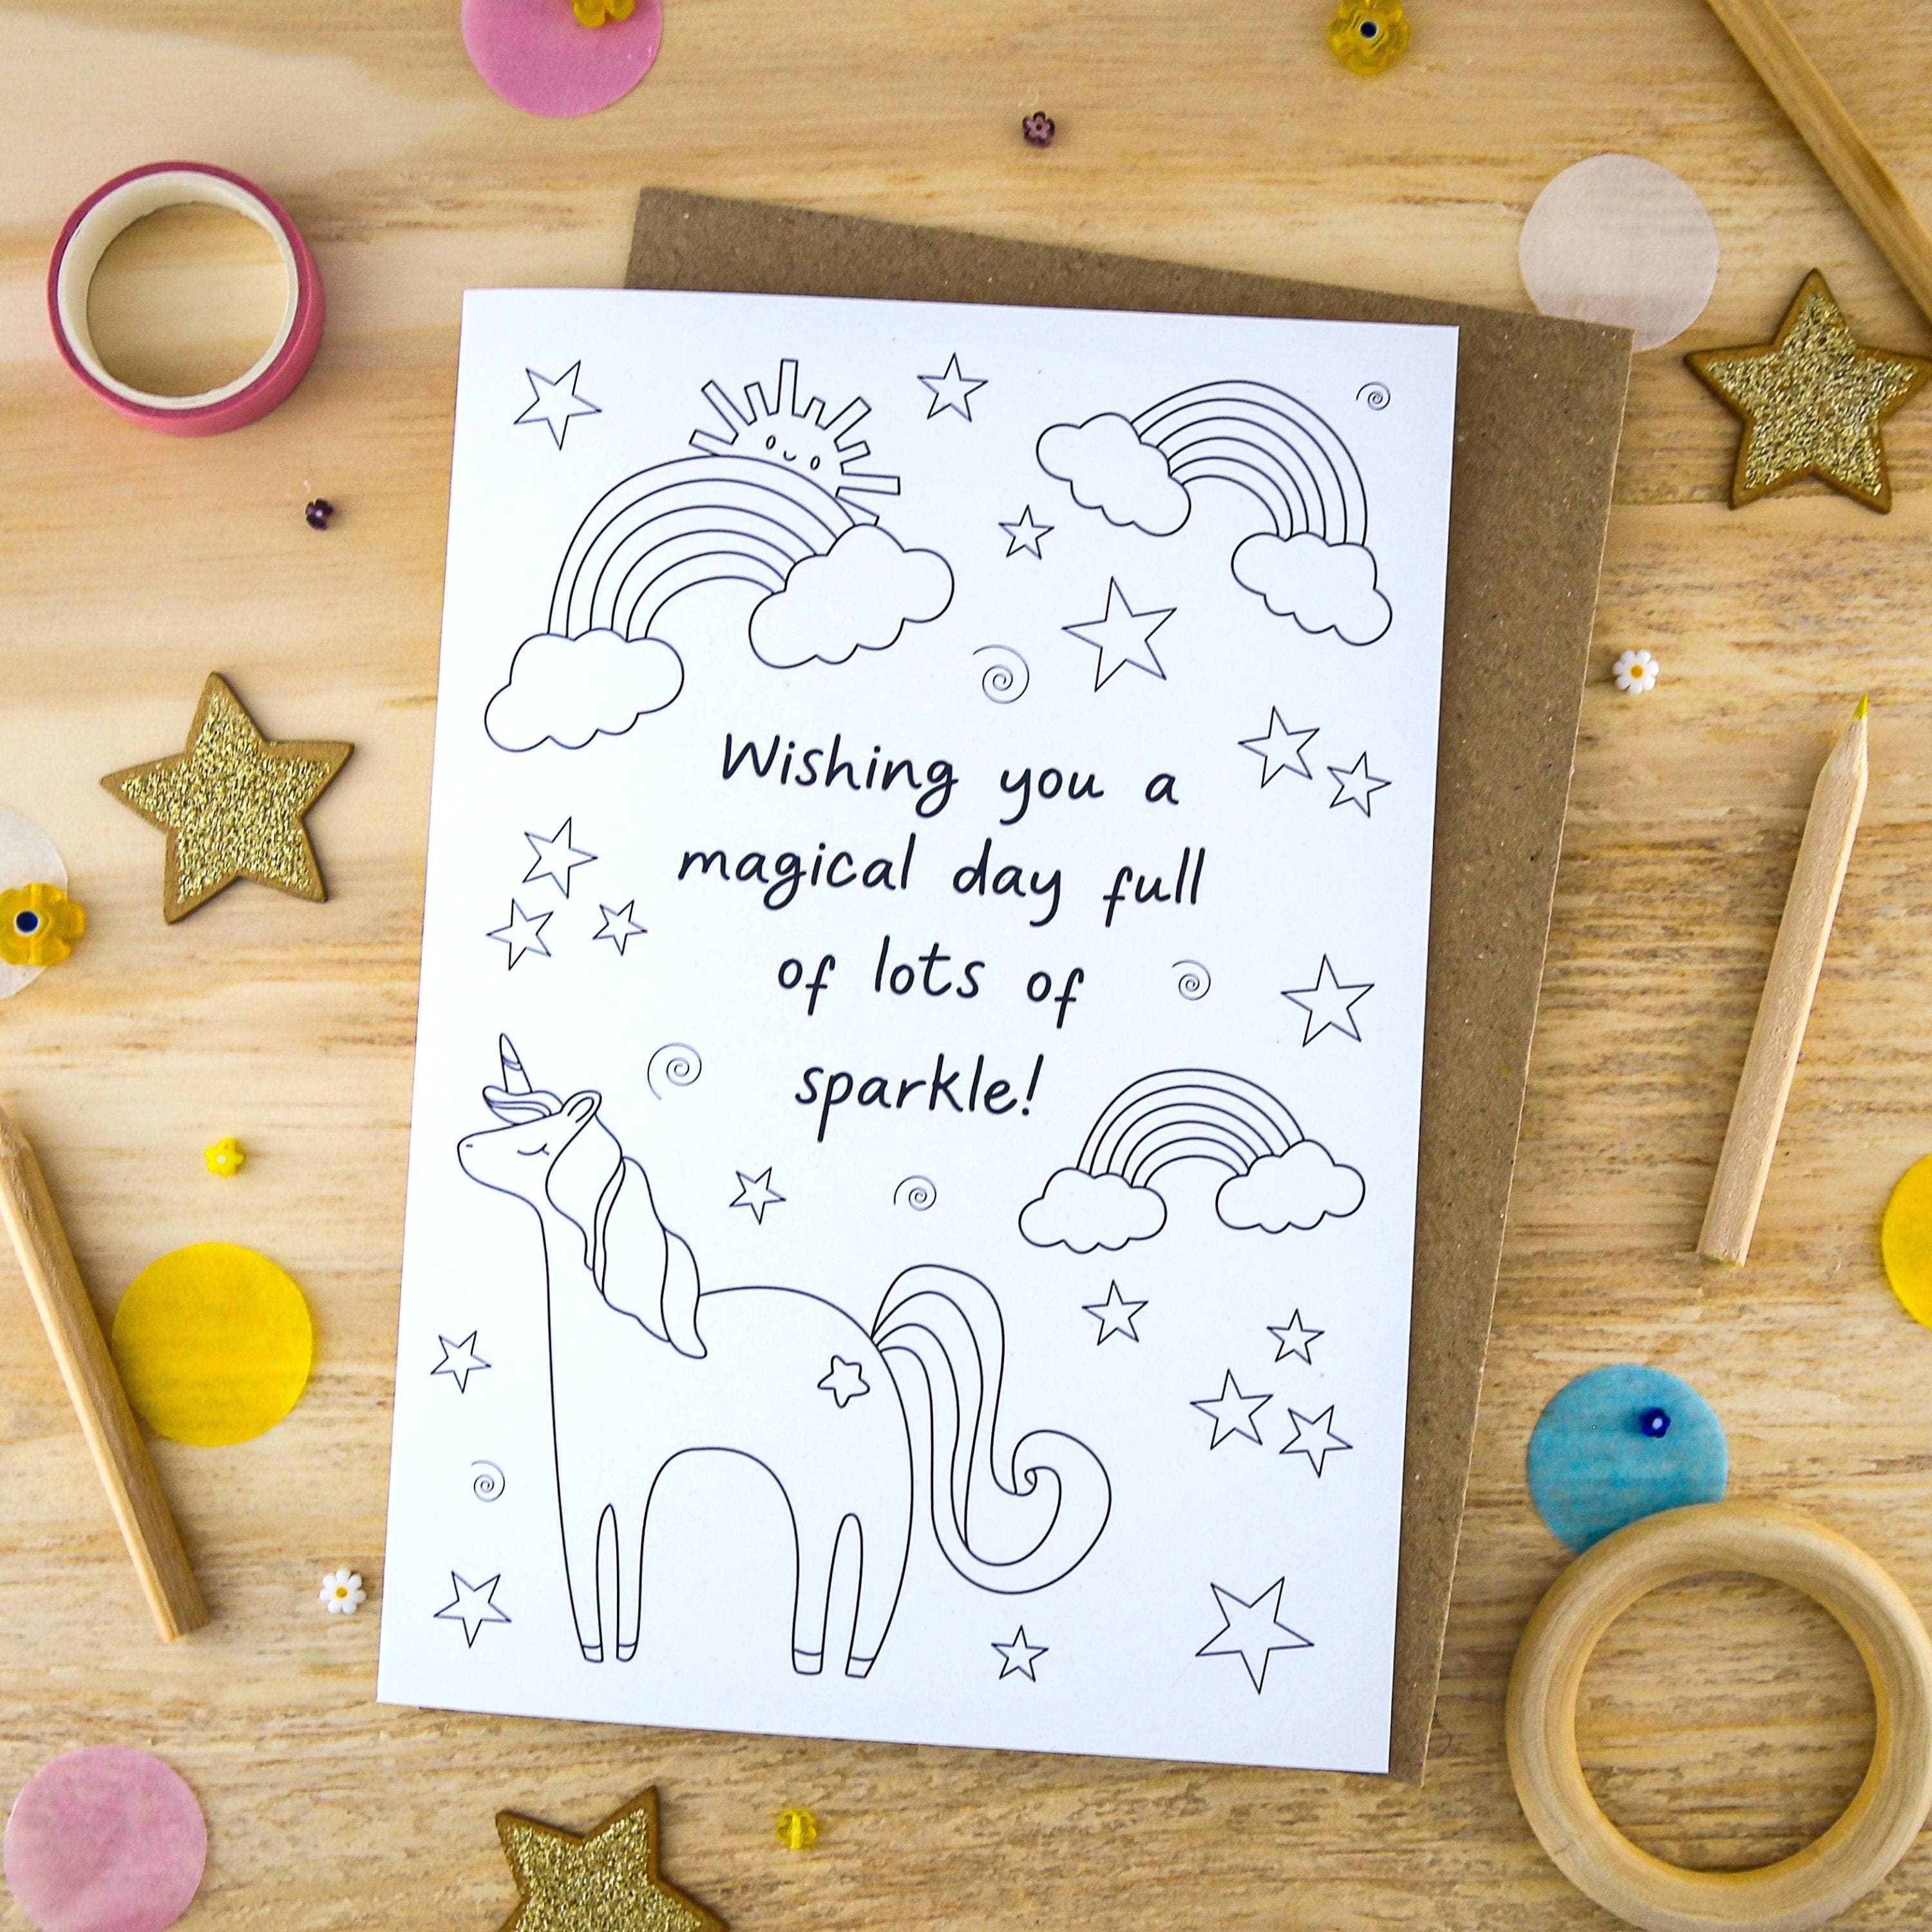 Wishing you a
magical day full
of lots of
sparkle!